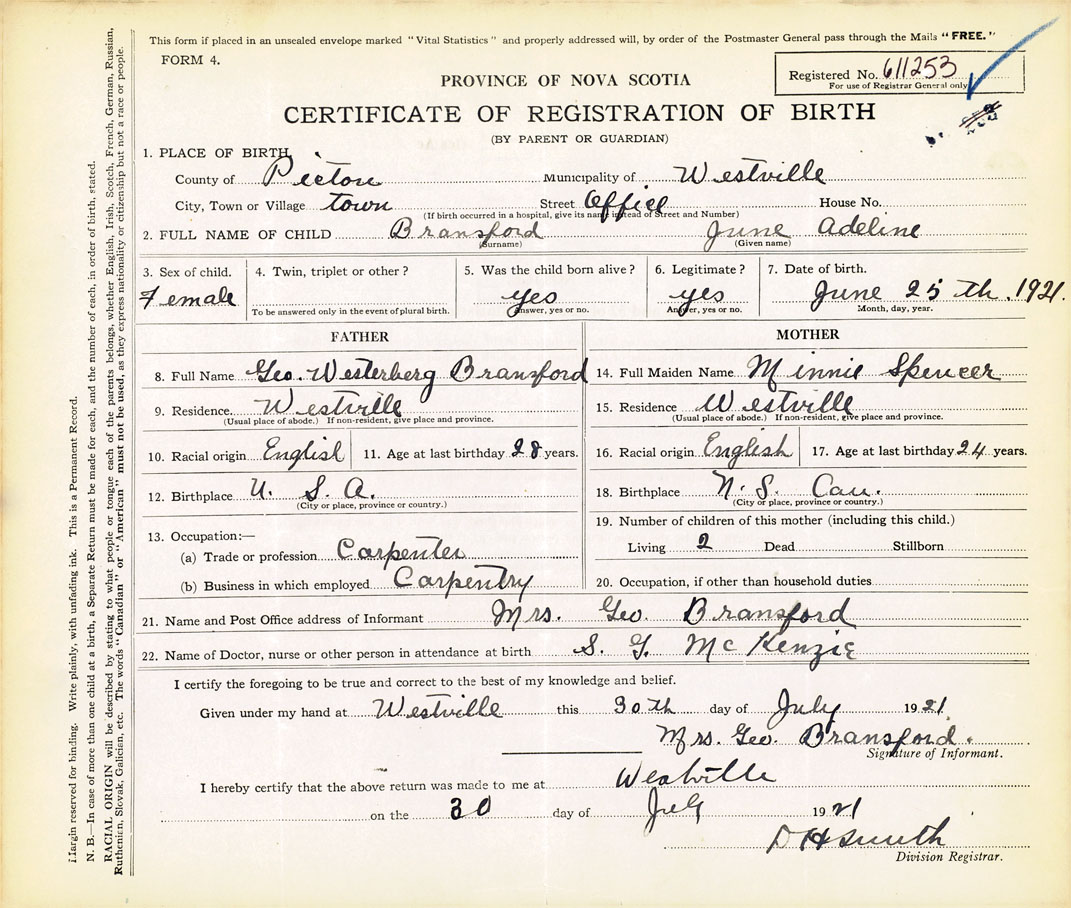 This form if placed in an unsealed envelope marked "Vital Statistics" and properly addressed will, by order of the Postmaster General pass through the Mails "FREE."
FORM 4.
Registered No. 611253
For use of Registrar General only
PROVINCE OF NOVA SCOTIA
CERTIFICATE OF REGISTRATION OF BIRTH
(BY PARENT OR GUARDIAN)
1. PLACE OF BIRTH
County of Pictou Municipality of Westville
City, Town or Village town Street Office House No.
(If birth occurred in a hospital, give its name instead of Street and Number)
2. FULL NAME OF CHILD Bransford June Adeline
(Surname) (Given name)
3. Sex of child. 4. Twin, triplet or other? 5. Was the child born alive? 6. Legitimate? 7. Date of birth.
Female yes yes June 25th. 1921.
To be answered only in the event of plural birth. Answer, yes or no. Answer, yes or no. Month, day, year.
FATHER MOTHER
8. Full Name Geo. Westerberg Bransford 14. Full Maiden Name Minnie Spencer
9. Residence. Westville 15. Residence Westville
(Usual place of abode.) If non-resident, give place and province. (Usual place of abode.) If non-resident, give place and province.
10. Racial origin English 11. Age at last birthday 28 years. 16. Racial origin English 17. Age at last birthday 24 years.
12. Birthplace U. S. A. 18. Birthplace N. S. Can.
(City or place, province or country.) (City or place, province or country.)
13. Occupation:— 19. Number of children of this mother (including this child.)
(a) Trade or profession Carpenter Living 2 Dead Stillborn
(b) Business in which employed Carpentry 20. Occupation, if other than household duties
21. Name and Post Office address of Informant Mrs. Geo. Bransford
22. Name of Doctor, nurse or other person in attendance at birth S. G. McKenzie
I certify the foregoing to be true and correct to the best of my knowledge and belief.
Given under my hand at Westville this 30th day of July 1921.
Mrs. Geo. Bransford.
Signature of Informant.
I hereby certify that the above return was made to me at Westville
on the 30 day of July 1921
D H Smith
Division Registrar.
Margin reserved for binding. Write plainly, with unfading ink. This is a Permanent Record.
N. B.—In case of more than one child at a birth, a Separate Return must be made for each, and the number of each, in order of birth, stated.
RACIAL ORIGIN will be described by stating to what people or tongue each of the parents belongs, whether English, Irish, Scotch, French, German, Russian,
Ruthenien, Slovak, Galician, etc. The words "Canadian" or "American" must not be used, as they express nationality or citizenship but not a race or people.